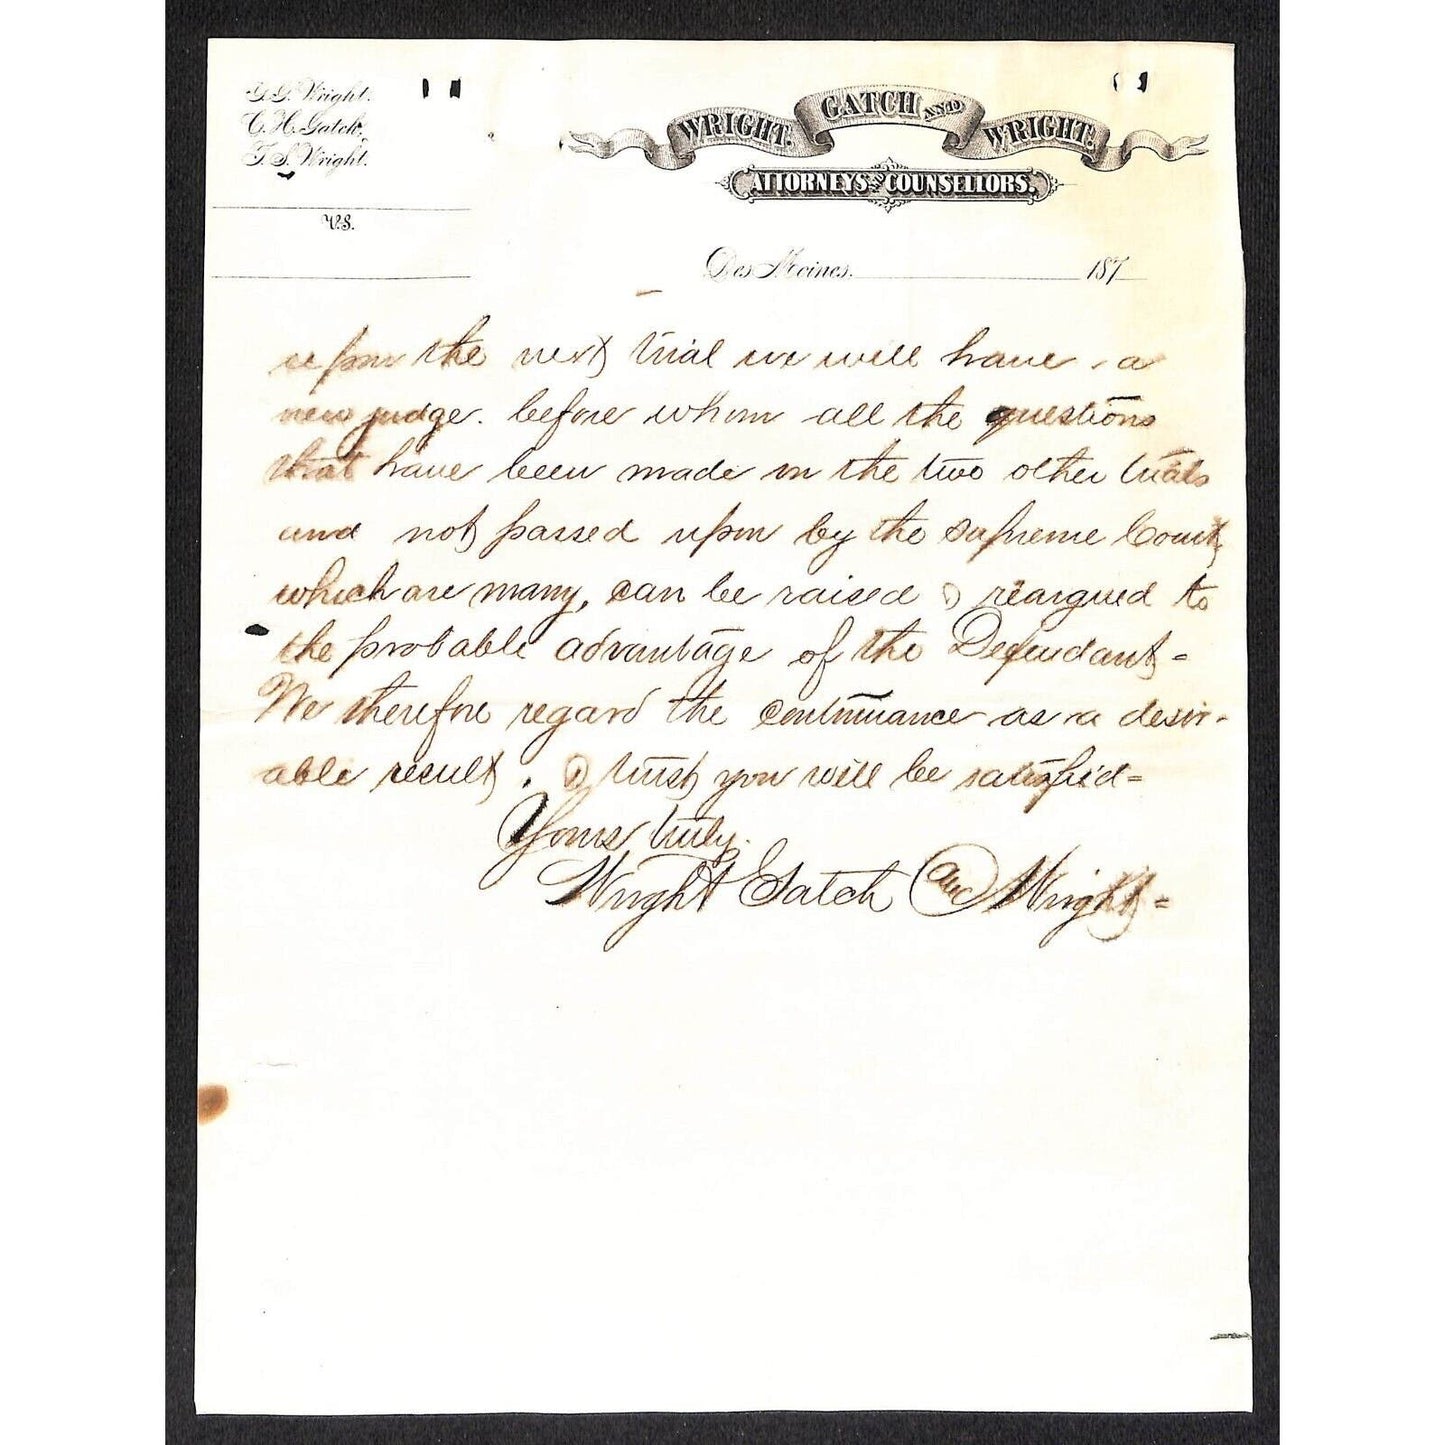 G.G. Wright.
C.H. Gatch,
T.S. Wright.
V.S.
WRIGHT. GATCH AND WRIGHT.
ATTORNEYS AND COUNSELLORS.
Des Moines. 187
upon the next trial we will have a
new judge. before whom all the questions
that have been made in the two other trials
and not passed upon by the Supreme Court,
which are many, can be raised & reargued to
the probable advantage of the Defendant =
We therefore regard the continuance as a desir-
able result. & trust you will be satisfied =
Yours truly.
Wright Gatch and Wright =